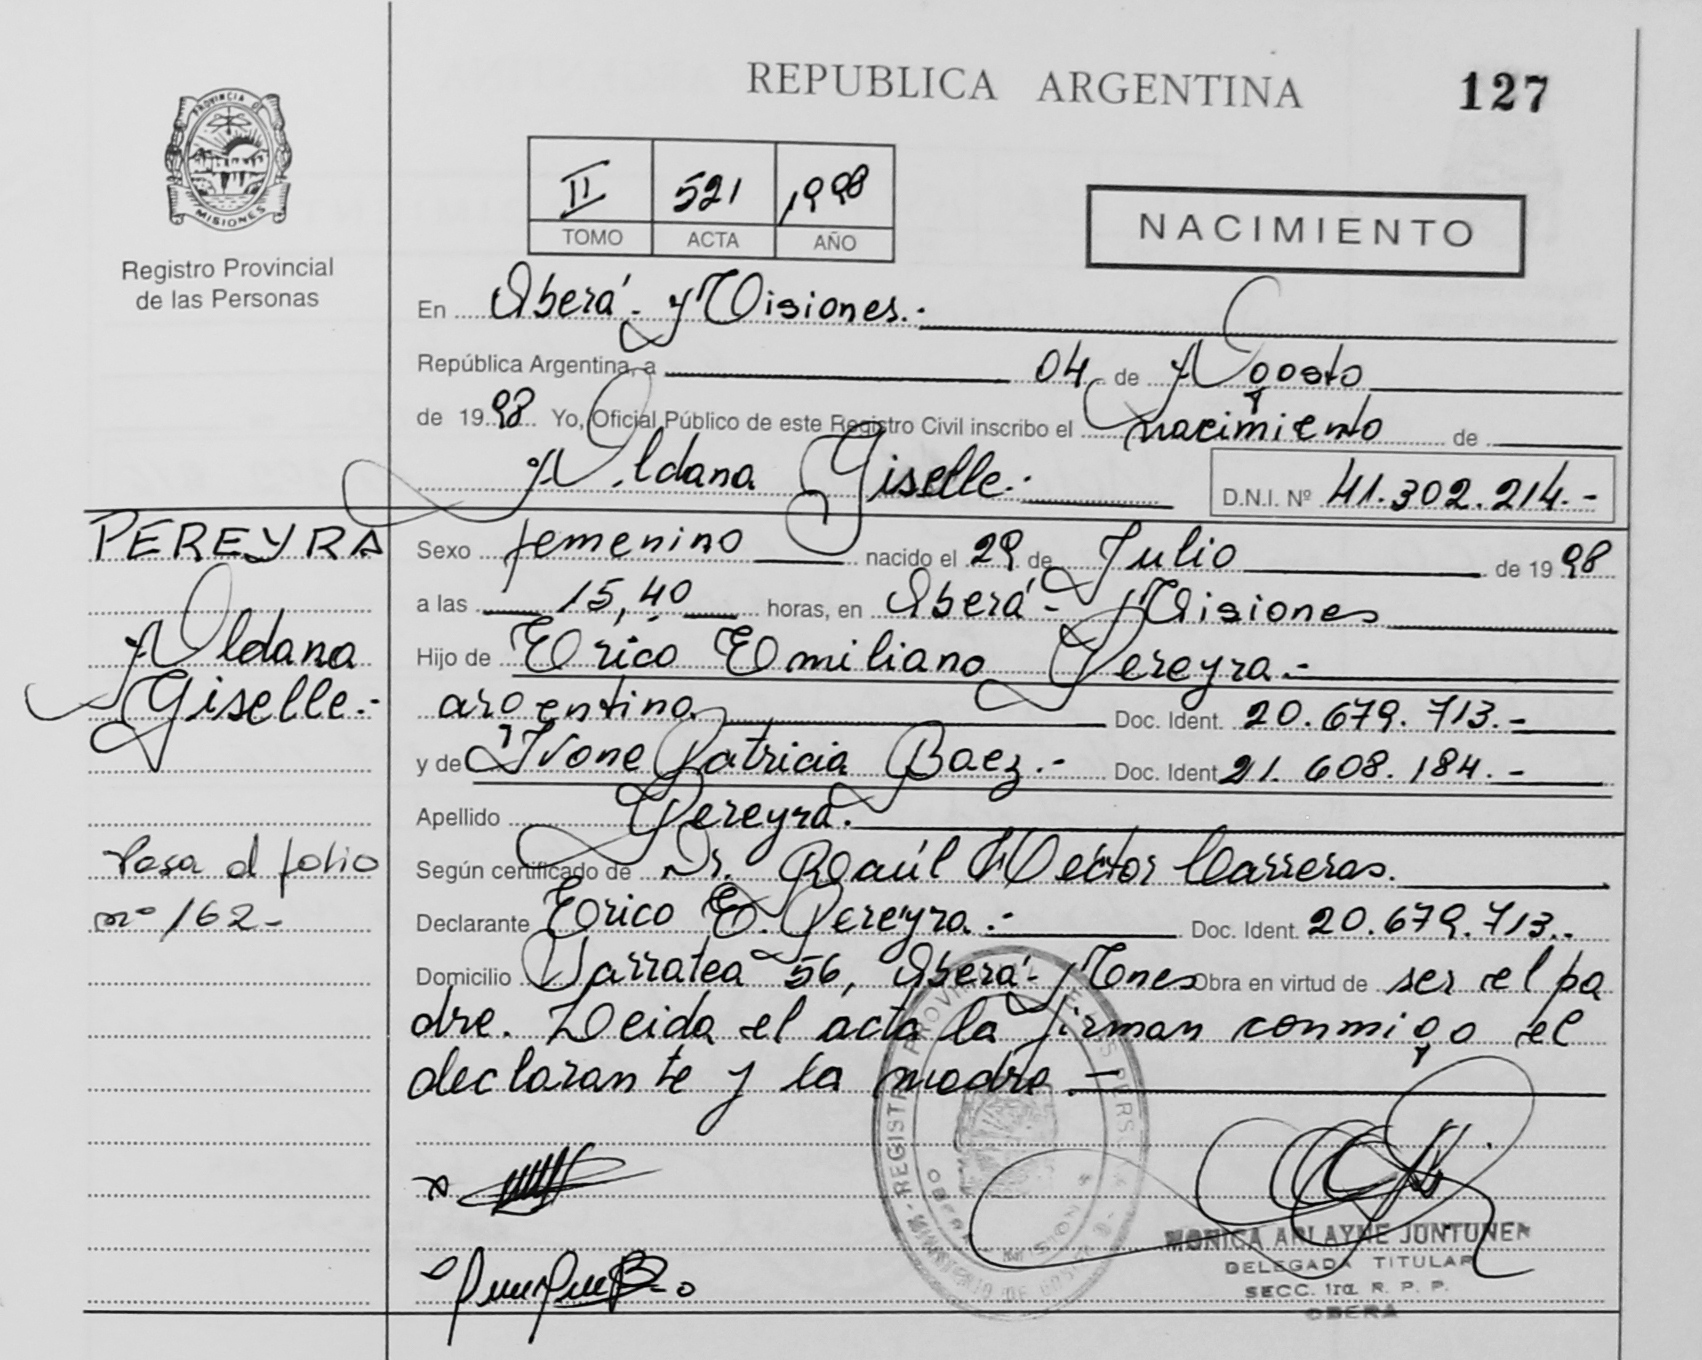 REPUBLICA ARGENTINA
127
PROVINCIA DE
MISIONES
Registro Provincial
de las Personas
II 521 1998
TOMO ACTA AÑO
NACIMIENTO
En Oberá - Misiones.-
República Argentina, a 04 de Agosto
de 1998 Yo, Oficial Público de este Registro Civil inscribo el nacimiento de
Aldana Giselle.- D.N.I. Nº 41.302.214.-
PEREYRA
Aldana
Giselle.-
Sexo femenino nacido el 29 de Julio de 1998
a las 15,40 horas, en Oberá - Misiones
Hijo de Erico Emiliano Pereyra.-
argentino Doc. Ident. 20.679.713.-
y de Ivone Patricia Baez.- Doc. Ident. 21.608.184.-
Apellido Pereyra.
Pasa al folio
nº 162-
Según certificado de Dr. Raúl Hector Carreras.
Declarante Erico E. Pereyra.- Doc. Ident. 20.679.713.-
Domicilio Sarratea 56, Oberá - Mnes Obra en virtud de ser el pa
dre. Leida el acta la firman conmigo el
declarante y la madre.-
MONICA ARLAYNE JUNTUNEN
DELEGADA TITULAR
SECC. 1ra. R. P. P.
OBERA